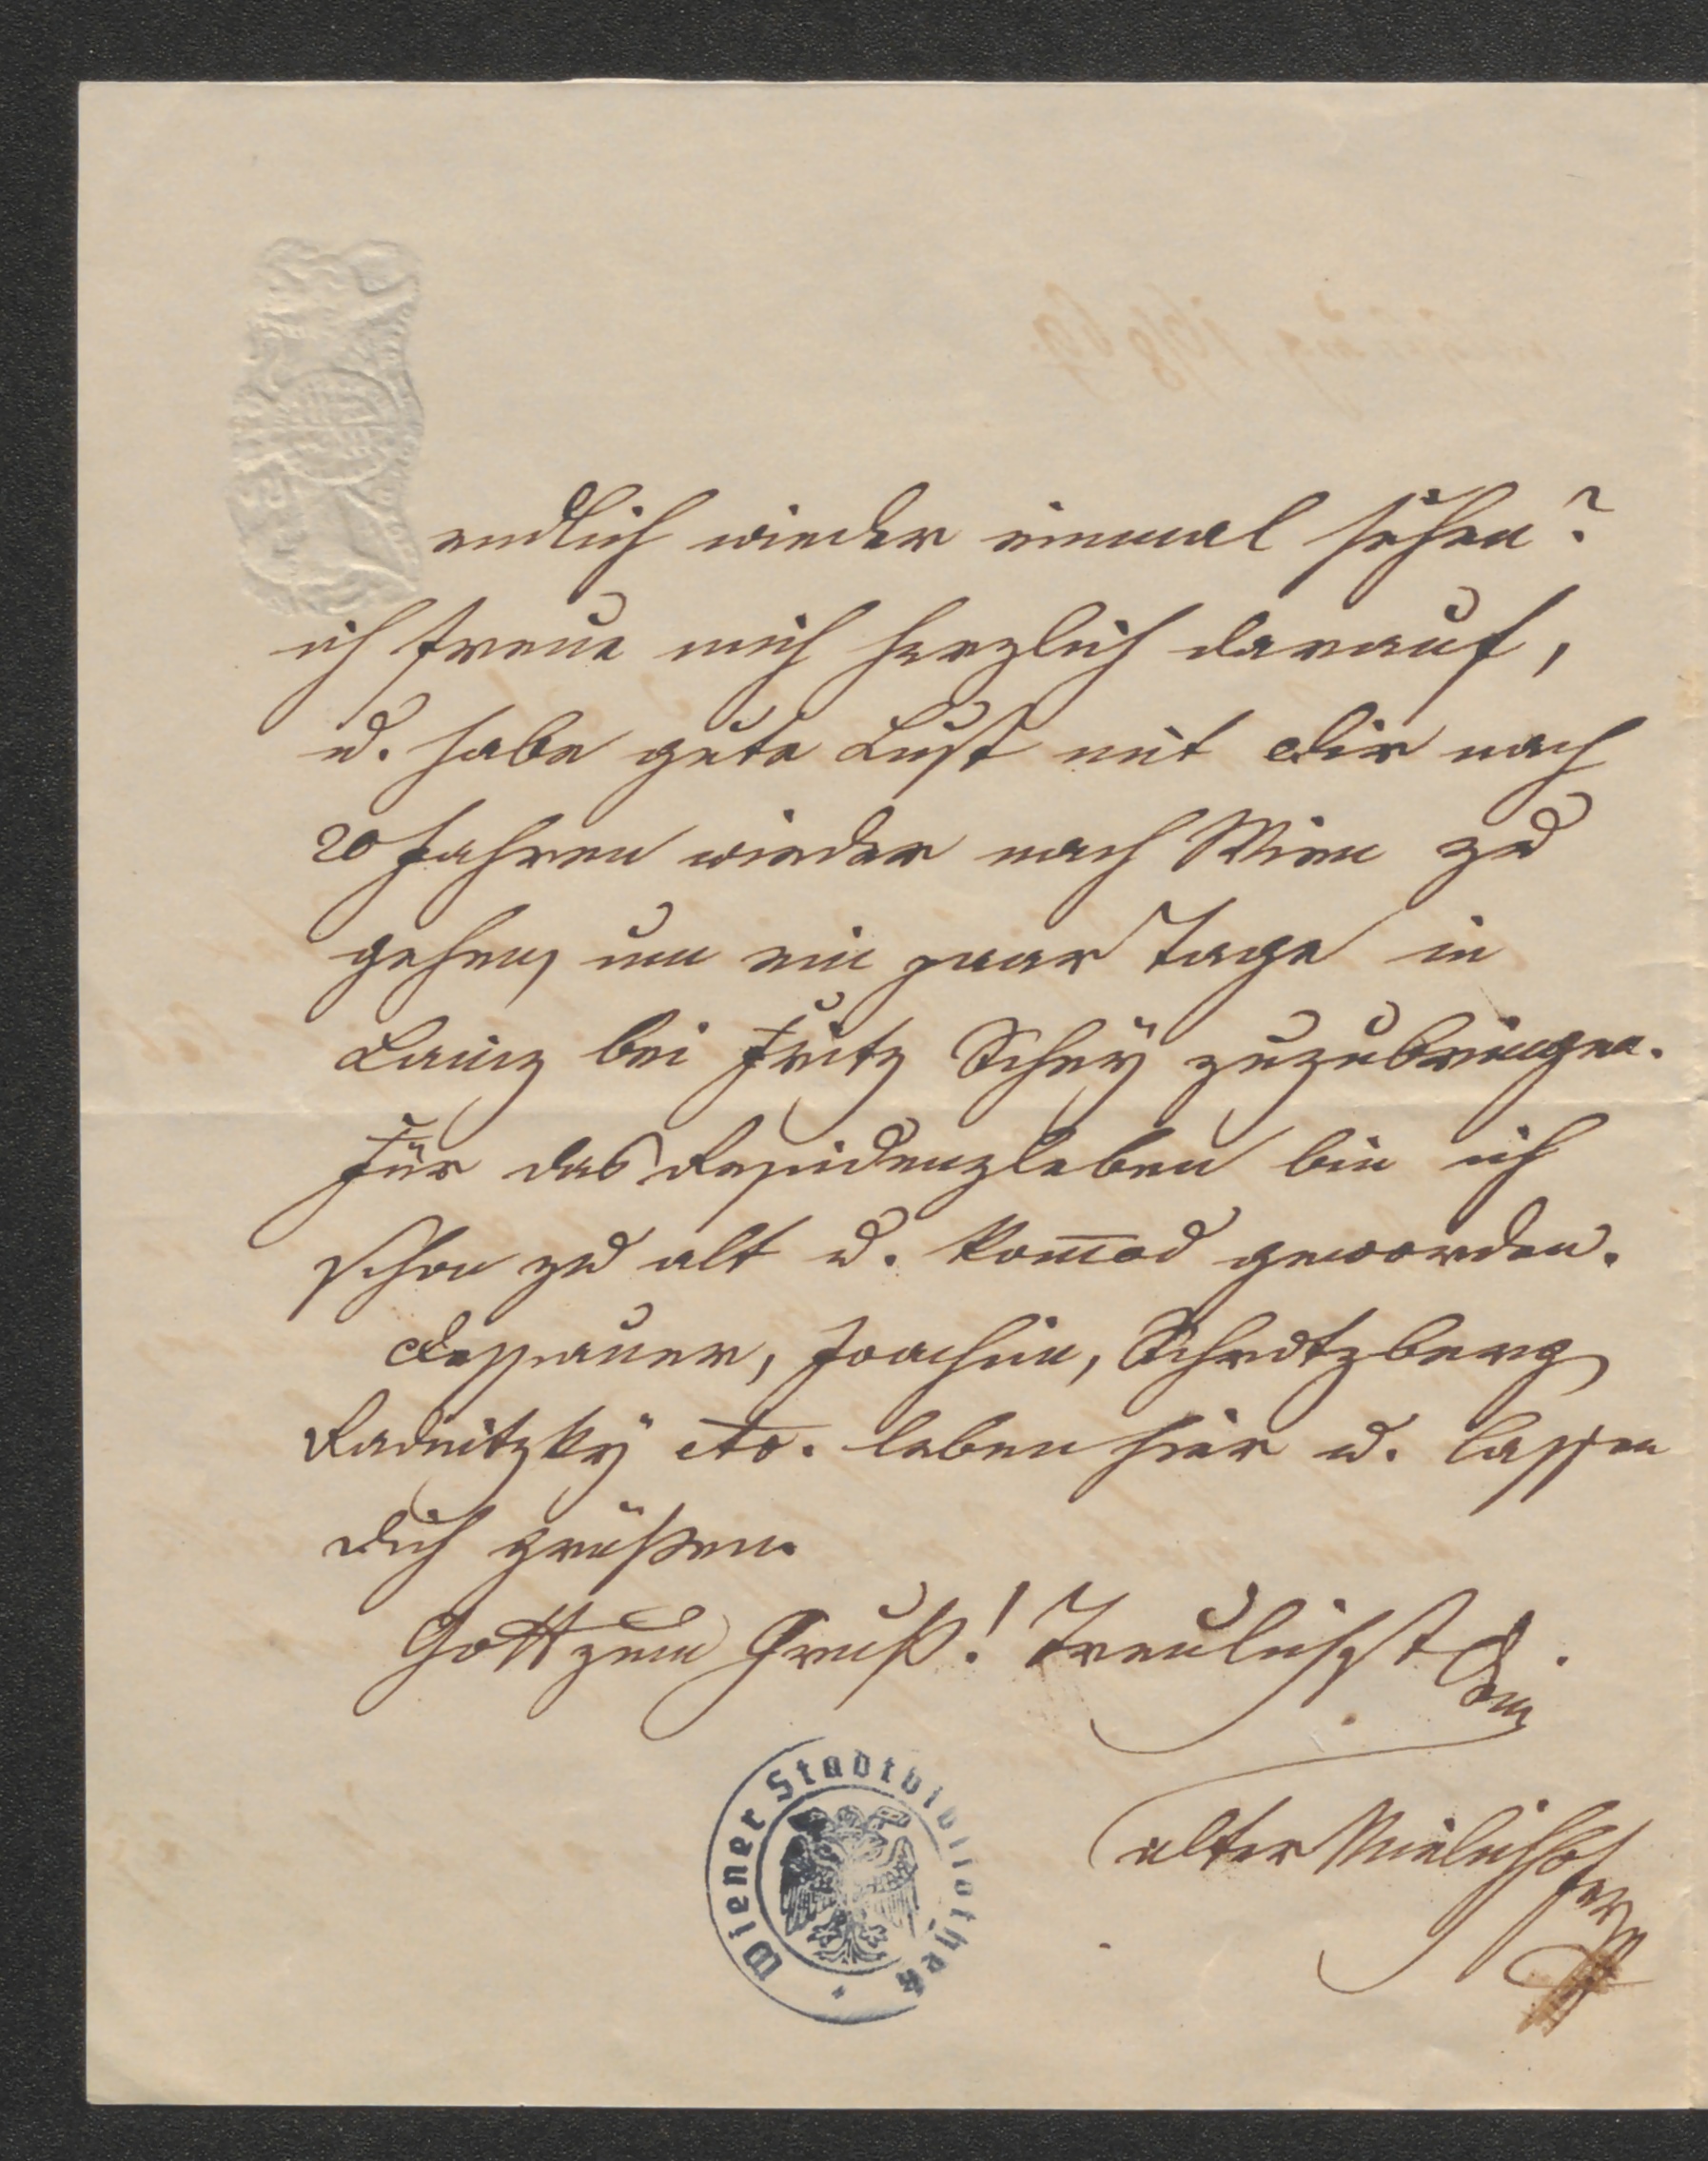 endlich wieder einmal sehen?
ich freue mich herzlich darauf,
u. habe gute Lust mit Dir nach
20 Jahren wieder nach Wien zu
gehen, um ein paar Tage in
Lainz bei Fritz Scheÿ zuzubringen.
Für das Residenzleben bin ich
schon zu alt u. kom̅od geworden.
Dessauer, Joachim, Schrotzberg
Radnitzkÿ etc. leben hier u. lassen
Dich grüßen.
Gott zum Gruß! Treulichst Dein
alter Mielichhofer
Wiener Stadtbibliothek